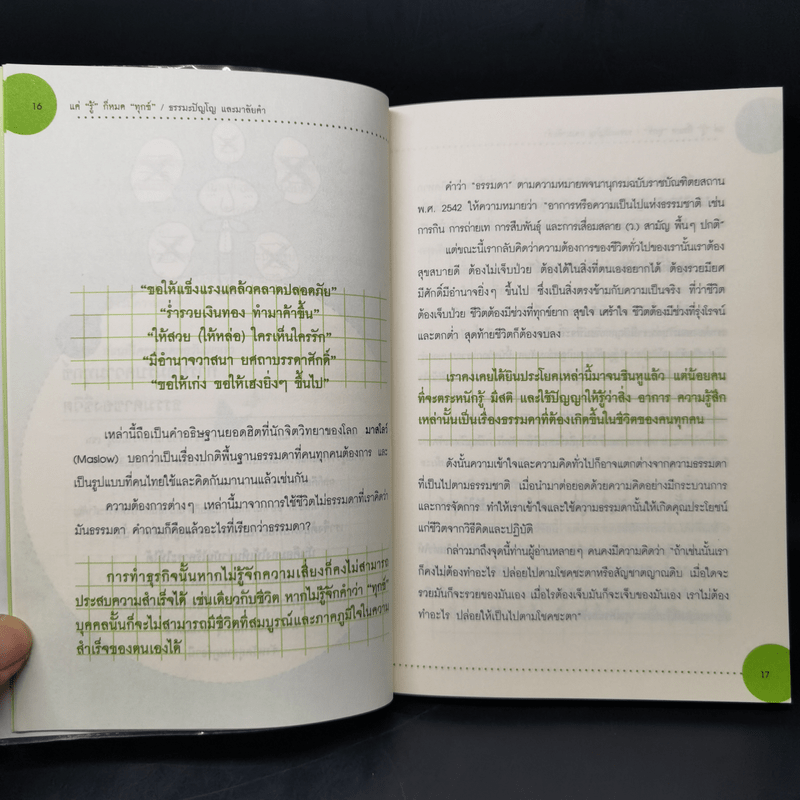 16
แค่ "รู้" ก็หมด "ทุกข์" / ธรรมะปัญโญ และมาลัยคำ
"ขอให้แข็งแรงแคล้วคลาดปลอดภัย"
"ร่ำรวยเงินทอง ทำมาค้าขึ้น"
"ให้สวย (ให้หล่อ) ใครเห็นใครรัก"
"มีอำนาจวาสนา ยศถาบรรดาศักดิ์"
"ขอให้เก่ง ขอให้เฮงยิ่งๆ ขึ้นไป"
เหล่านี้ถือเป็นคำอธิษฐานยอดฮิตที่นักจิตวิทยาของโลก มาสโลว์
(Maslow) บอกว่าเป็นเรื่องปกติพื้นฐานธรรมดาที่คนทุกคนต้องการ และ
เป็นรูปแบบที่คนไทยใช้และคิดกันมานานแล้วเช่นกัน
ความต้องการต่างๆ เหล่านี้มาจากการใช้ชีวิตไม่ธรรมดาที่เราคิดว่า
มันธรรมดา คำถามก็คือแล้วอะไรที่เรียกว่าธรรมดา?
การทำธุรกิจนั้นหากไม่รู้จักความเสี่ยงก็คงไม่สามารถ
ประสบความสำเร็จได้ เช่นเดียวกับชีวิต หากไม่รู้จักคำว่า "ทุกข์"
บุคคลนั้นก็จะไม่สามารถมีชีวิตที่สมบูรณ์และภาคภูมิใจในความ
สำเร็จของตนเองได้
คำว่า "ธรรมดา" ตามความหมายพจนานุกรมฉบับราชบัณฑิตยสถาน
พ.ศ. 2542 ให้ความหมายว่า "อาการหรือความเป็นไปแห่งธรรมชาติ เช่น
การกิน การถ่ายเท การสืบพันธุ์ และการเสื่อมสลาย (ว.) สามัญ พื้นๆ ปกติ"
แต่ขณะนี้เรากลับคิดว่าความต้องการของชีวิตทั่วไปของเรานั้นเราต้อง
สุขสบายดี ต้องไม่เจ็บป่วย ต้องได้ในสิ่งที่ตนเองอยากได้ ต้องรวยมียศ
มีศักดิ์มีอำนาจยิ่งๆ ขึ้นไป ซึ่งเป็นสิ่งตรงข้ามกับความเป็นจริง ที่ว่าชีวิต
ต้องเจ็บป่วย ชีวิตต้องมีช่วงที่ทุกข์ยาก สุขใจ เศร้าใจ ชีวิตต้องมีช่วงที่รุ่งโรจน์
และตกต่ำ สุดท้ายชีวิตก็ต้องจบลง
เราคงเคยได้ยินประโยคเหล่านี้มาจนชินหูแล้ว แต่น้อยคน
ที่จะตระหนักรู้ มีสติ และใช้ปัญญาให้รู้ว่าสิ่ง อาการ ความรู้สึก
เหล่านั้นเป็นเรื่องธรรมดาที่ต้องเกิดขึ้นในชีวิตของคนทุกคน
ดังนั้นความเข้าใจและความคิดทั่วไปก็อาจแตกต่างจากความธรรมดา
ที่เป็นไปตามธรรมชาติ เมื่อนำมาต่อยอดด้วยความคิดอย่างมีกระบวนการ
และการจัดการ ทำให้เราเข้าใจและใช้ความธรรมดานั้นให้เกิดคุณประโยชน์
แก่ชีวิตจากวิธีคิดและปฏิบัติ
กล่าวมาถึงจุดนี้ท่านผู้อ่านหลายๆ คนคงมีความคิดว่า "ถ้าเช่นนั้นเรา
ก็คงไม่ต้องทำอะไร ปล่อยไปตามโชคชะตาหรือสัญชาตญาณดิบ เมื่อใดจะ
รวยมันก็จะรวยของมันเอง เมื่อไรต้องเจ็บมันก็จะเจ็บของมันเอง เราไม่ต้อง
ทำอะไร ปล่อยให้เป็นไปตามโชคชะตา"
17